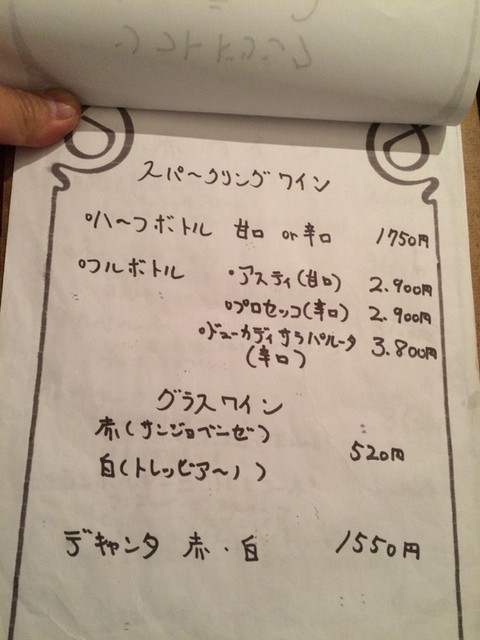 スパークリングワイン
ハーフボトル 甘口 or 辛口 1750円
フルボトル ・アスティ(甘口) 2.900円
・プロセッコ(辛口) 2.900円
・ドューカディサラパルータ 3.800円
(辛口)
グラスワイン
赤(サンジョベーゼ)
520円
白(トレッビアーノ)
デキャンタ 赤・白 1550円